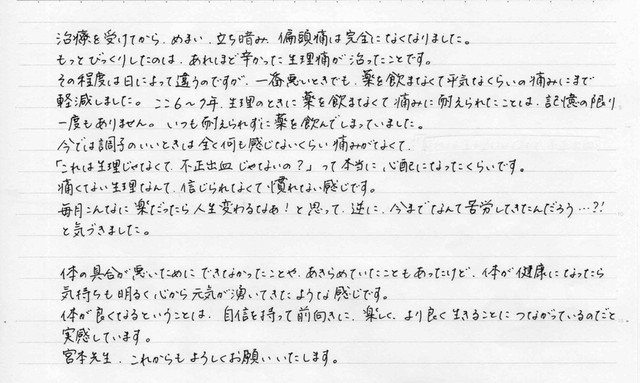 治療を受けてから、めまい、立ち暗み、偏頭痛は完全になくなりました。
もっとびっくりしたのは、あれほど辛かった生理痛が治ったことです。
その程度は日によって違うのですが、一番悪いときでも、薬を飲まなくて平気なくらいの痛みにまで
軽減しました。ここ6〜7年、生理のときに薬を飲まなくて痛みに耐えられたことは、記憶の限り
一度もありません。いつも耐えられずに薬を飲んでしまっていました。
今では調子のいいときは全く何も感じないくらい痛みがなくて、
「これは生理じゃなくて、不正出血じゃないの?」って本当に心配になったくらいです。
痛くない生理なんて、信じられなくて慣れない感じです。
毎月こんなに楽だったら人生変わるなあ!と思って、逆に、今までなんて苦労してきたんだろう…?!
と気づきました。
体の具合が悪いためにできなかったことや、あきらめていたこともあったけど、体が健康になったら
気持ちも明るく心から元気が湧いてきたような感じです。
体が良くなるということは、自信を持って前向きに、楽しく、より良く生きることにつながっているのだと
実感しています。
宮本先生、これからもよろしくお願いいたします。